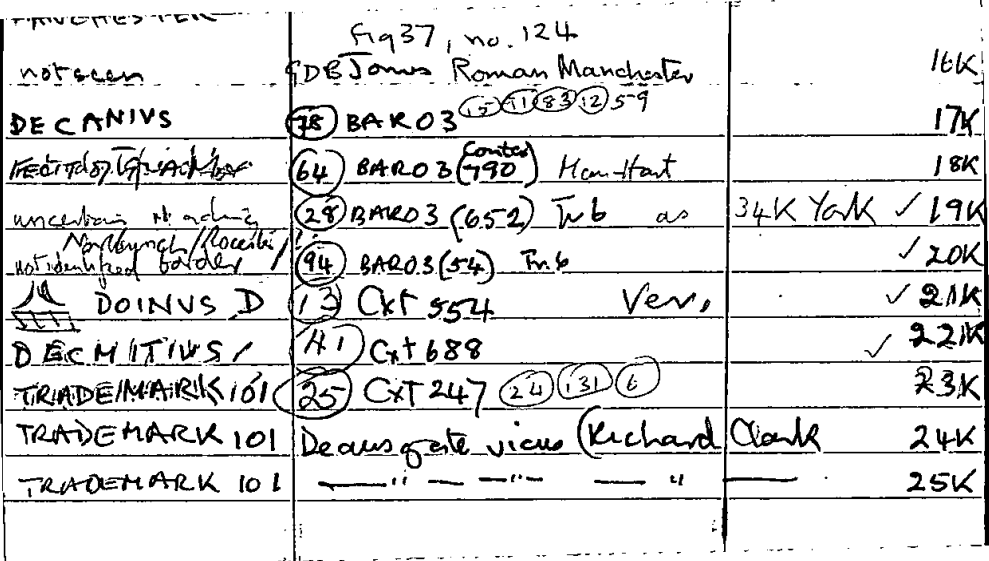 MANCHESTER
Fig 37, no. 124
not seen GDB Jones Roman Manchester 16K
DECANIVS 78 BAR03 15 71 83 12 59 17K
64 BAR03 (Context 790) Ham-Hart 18K
uncertain reading 28 BAR03 (652) Tr b as 34K York ✓ 19K
not identified border / 94 BAR03 (54) Tr b ✓ 20K
DOINVS D 13 Cxt 554 Ver, ✓ 21K
DECMITIVS / 41 Cxt 688 ✓ 22K
TRADEMARK 101 25 CxT 247 24 131 6 23K
TRADEMARK 101 Deansgate vicus (Richard Clark 24K
TRADEMARK 101 — " — — " — — " — 25K